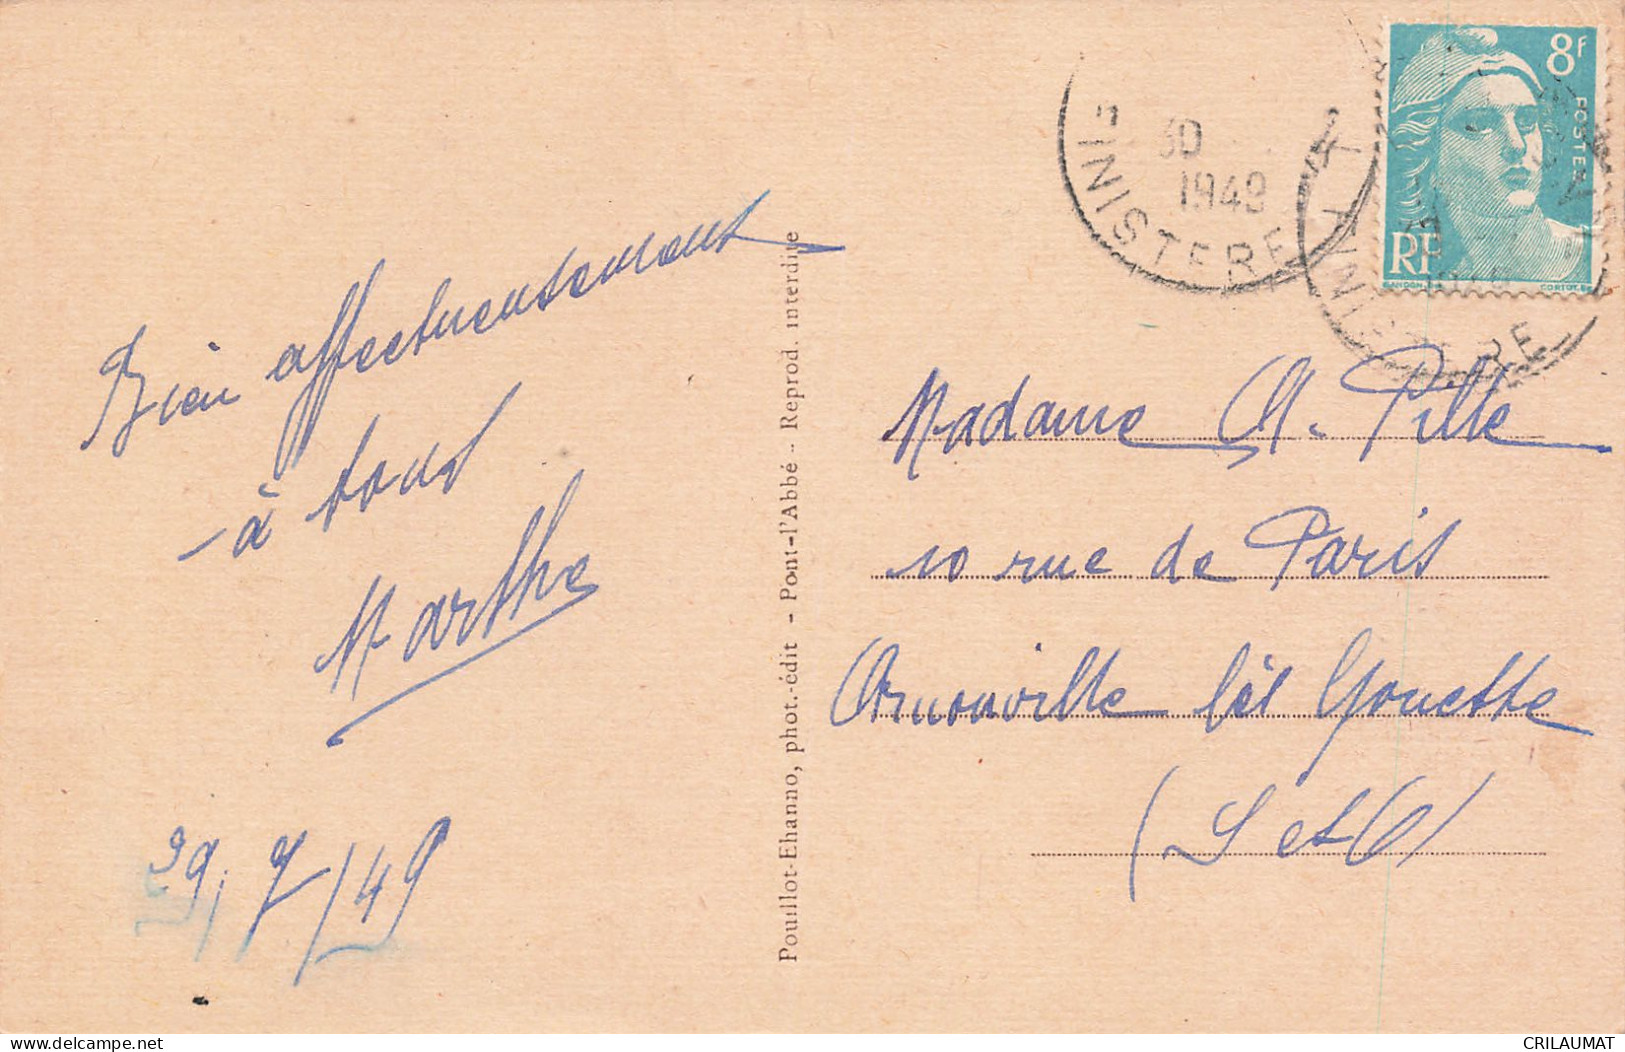 Bien affectueusement
à tous
Marthe
29/7/49
Pouillot-Ehanno, phot.-édit - Pont-l'Abbé - Reprod. interdite
30
1949
FINISTERE
FINISTERE
8F
POSTES
RF
GANDON
CORTOT
Madame M. Pille
10 rue de Paris
Arnouville lès Gonesse
(S et O)
www.delcampe.net
CRILAUMAT